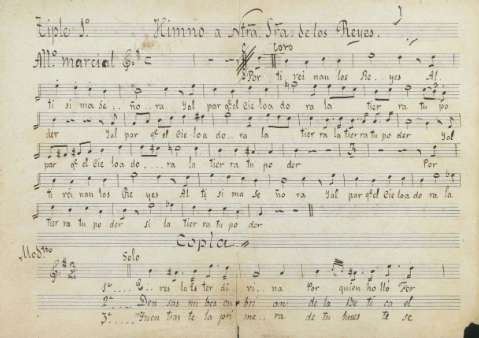 Tiple 1º Himno a Ntra. Sra. de los Reyes.
Allº marcial Coro
Por ti rei nan los Re.. yes Al.
ti si ma Se.. ño.. ra Y al par q.e el Cie lo a do ra la tier ra tu po
der Y al par q.e el Cie lo a do.. ra la tier ra la tier ra tu po der Y al
par q.e el Cie lo a do.... ra la tier ra tu po der Por
ti rei nan los Re yes Al ti si ma Se ño ra Y al par q.e el Cie lo a do ra la
tier ra tu po der si la tier ra tu po der
Copla
Mod.to Solo
1ª .... E.. res la Es ter di vi.. na Por quien ho lló Fer
2ª ..... Den sas nu bes cu brí an de la Bé ti ca el
3ª ..... te la pri me.. ra de tu te se